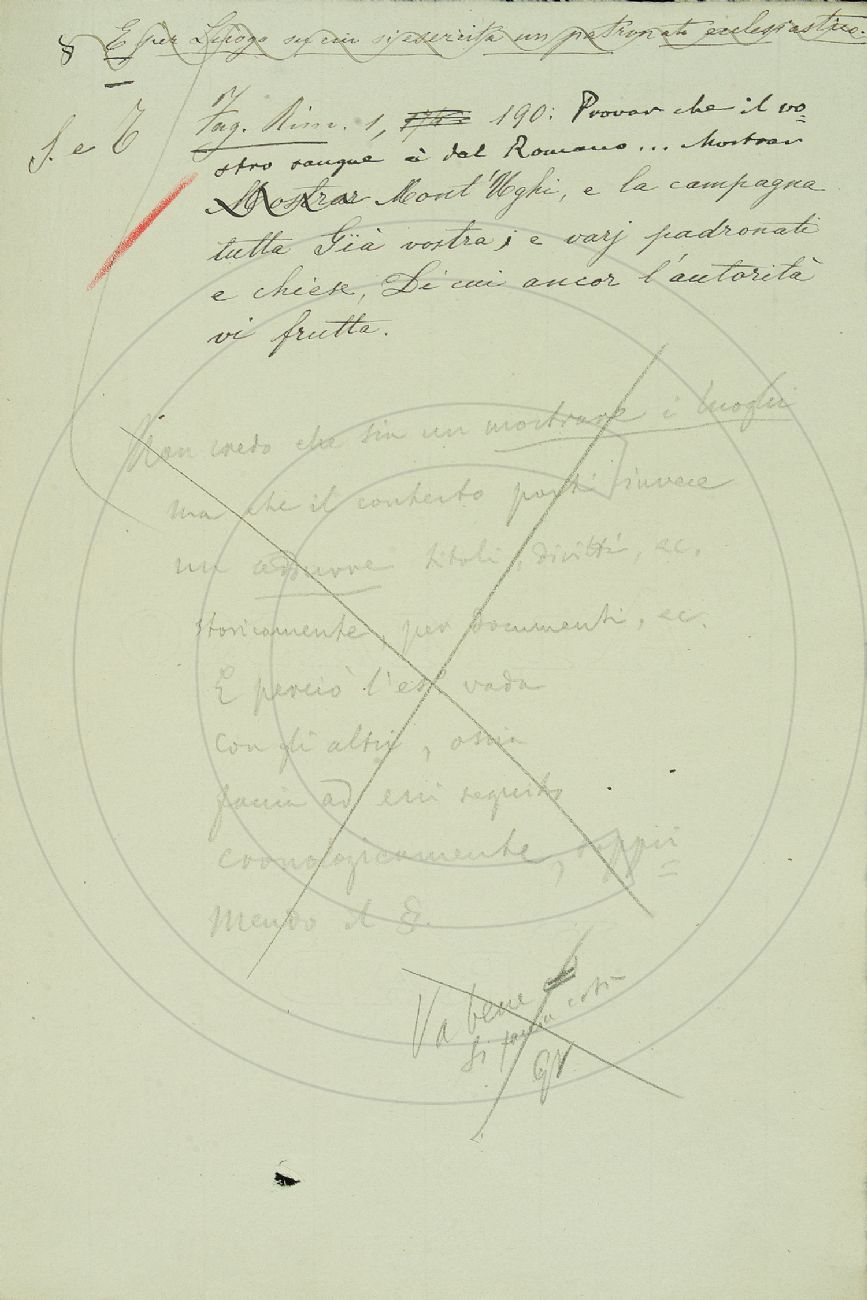 § E per Luogo su cui si esercita un patronato ecclesiastico.
S. e T
Fag. Rim. 1, 190: Provar che il vo=
stro sangue è dal Romano... Mostrar
Mostrar Mont'Ughi, e la campagna
tutta Già vostra; e varj padronati
e chiese, Di cui ancor l'autorità
vi frutta.
Non credo che sia un mostrare i luoghi
ma che il contesto porti invece
un addurre titoli, diritti, ec.
storicamente, per documenti, ec.
E perciò l'es. vada
con gli altri, ossia
faccia ad essi seguito
cronologicamente, soppri=
mendo il §.
Va bene
Si faccia così